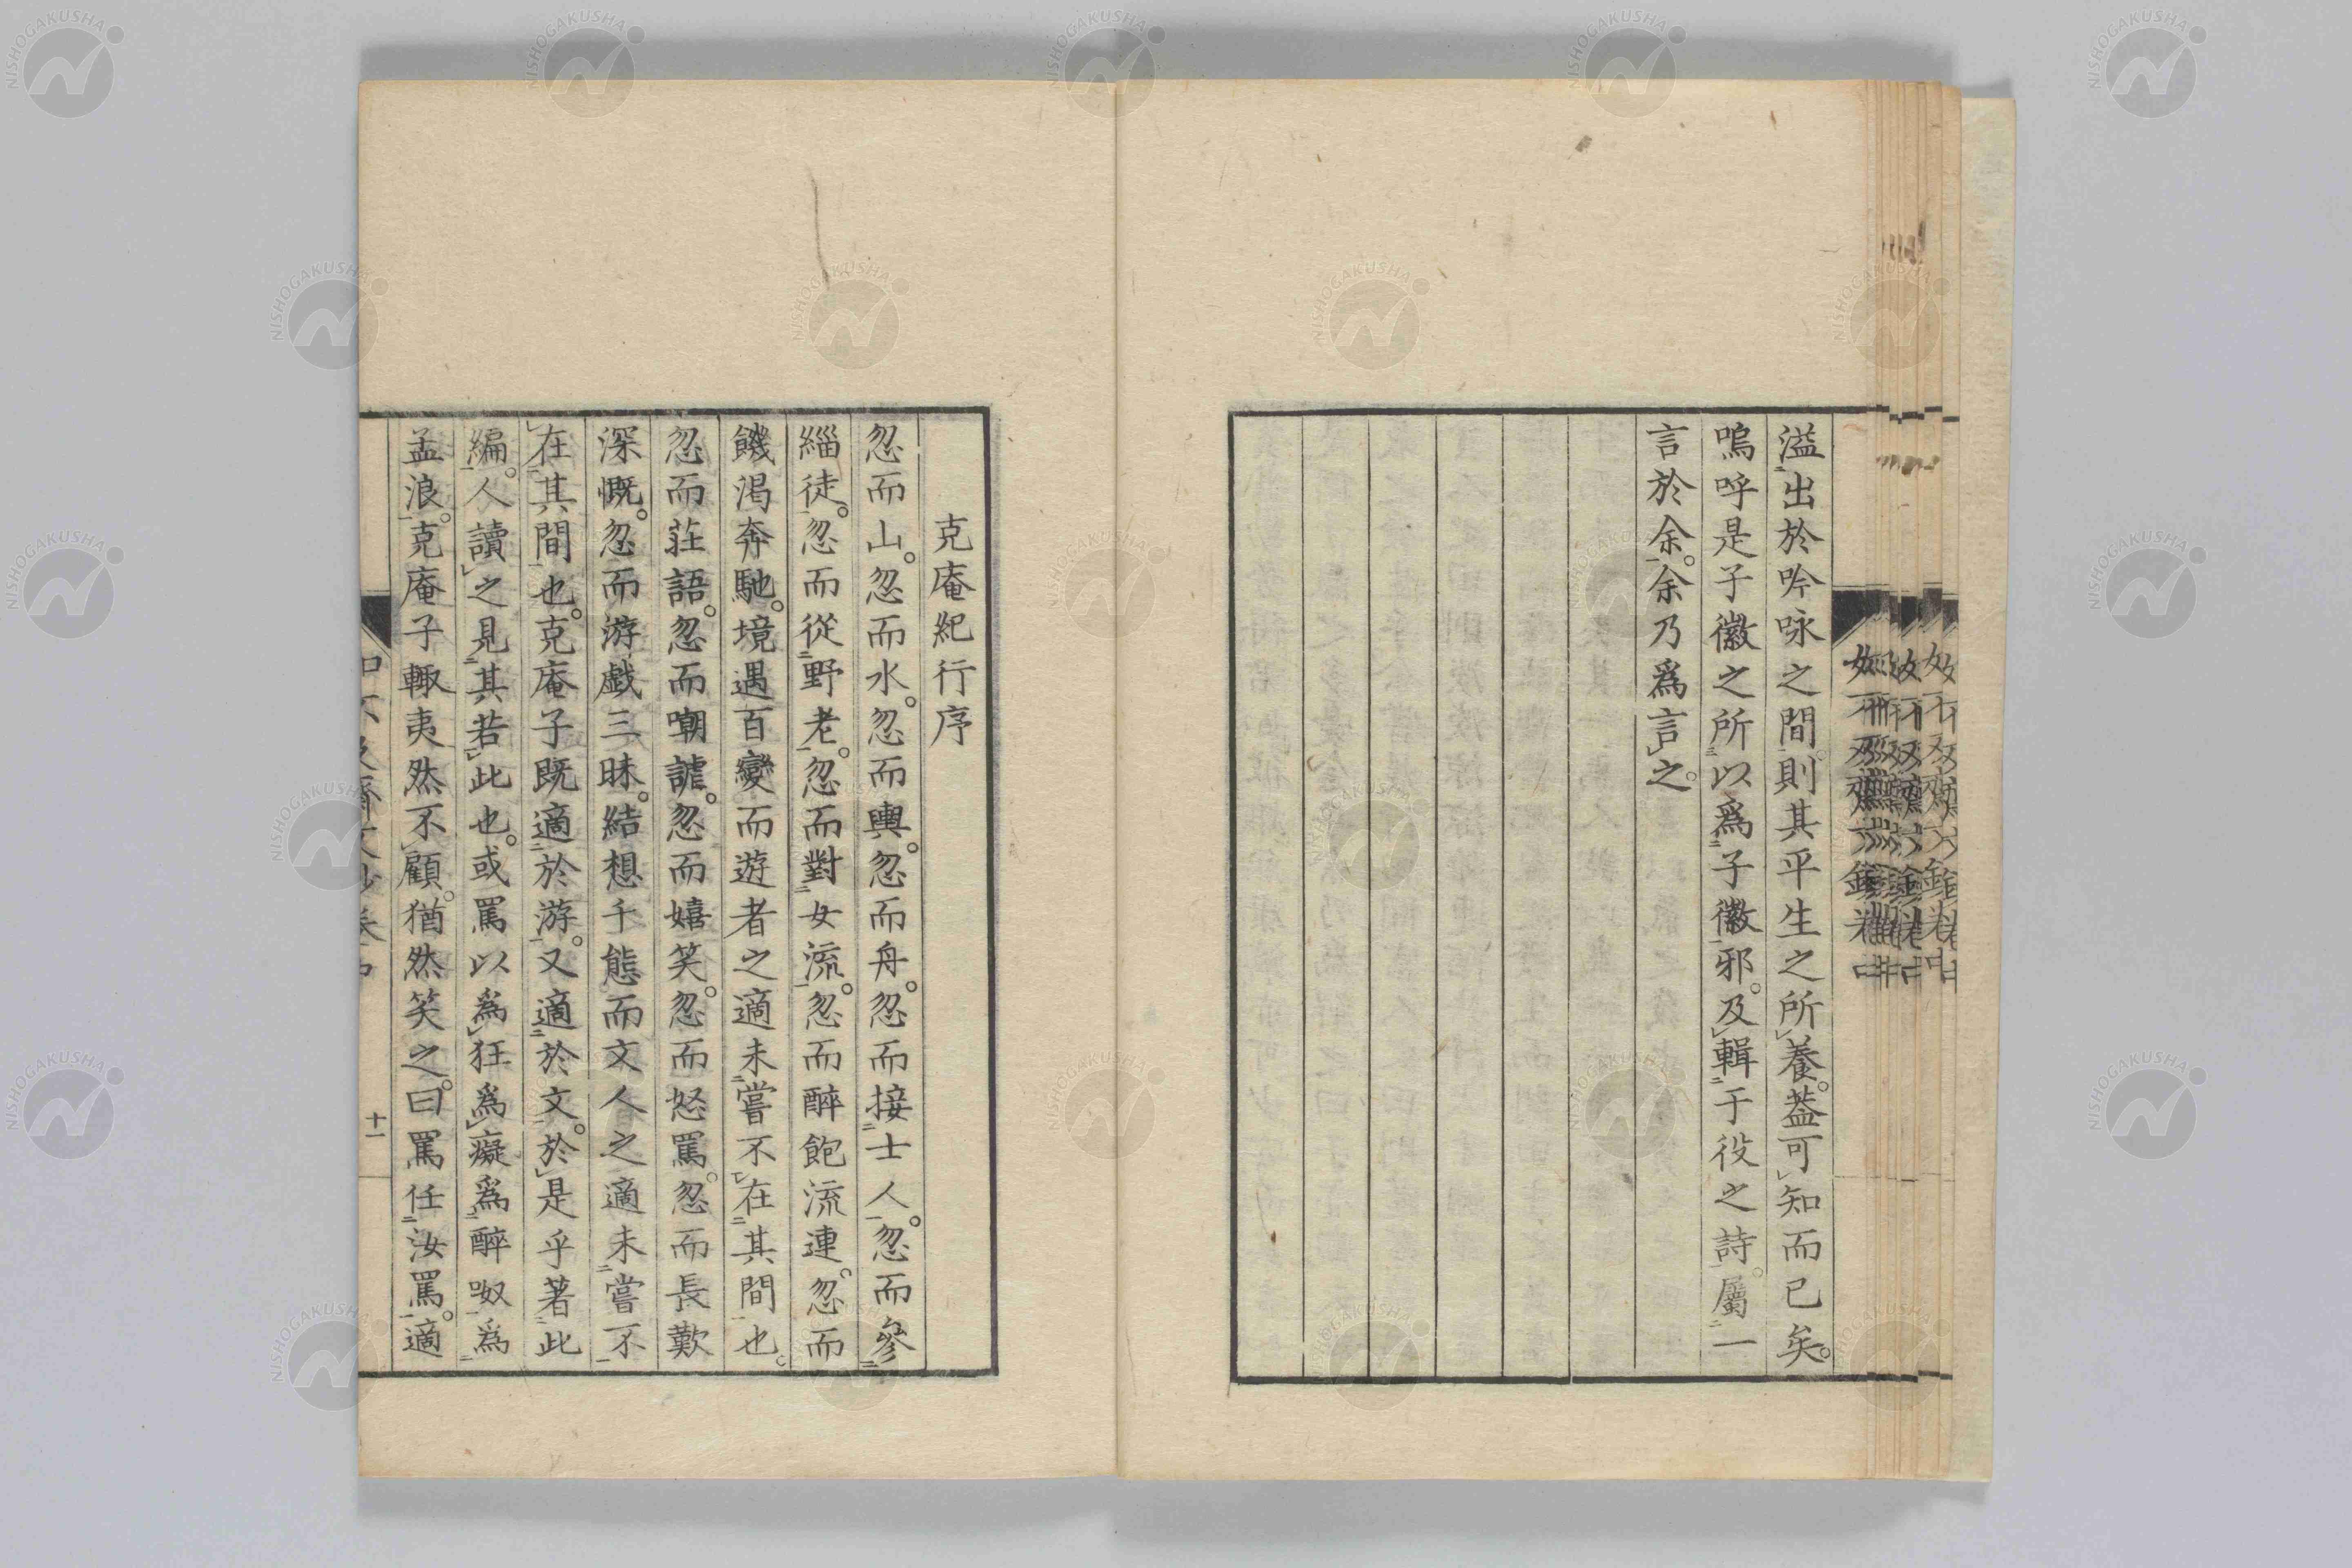 溢出於吟咏之間則其平生之所養。葢可知而已矣。
嗚呼是子徽之所以爲子徽邪。及輯于役之詩。屬一
言於余。余乃爲言之。
克庵紀行序
忽而山。忽而水。忽而輿。忽而舟。忽而接士人。忽而參
緇徒。忽而從野老。忽而對女流。忽而醉飽流連。忽而
饑渴奔馳。境遇百變而遊者之適未嘗不在其間也。
忽而莊語。忽而嘲謔。忽而嬉笑。忽而怒罵。忽而長歎
深慨。忽而游戯三昧。結想千態而文人之適未嘗不
在其間也。克庵子既適於游。又適於文。於是乎著此
編。人讀之見其若此也。或罵以爲狂爲癡爲醉呶爲
孟浪。克庵子輙夷然不顧。猶然笑之。曰罵任汝罵。適
十一
NISHOGAKUSHA